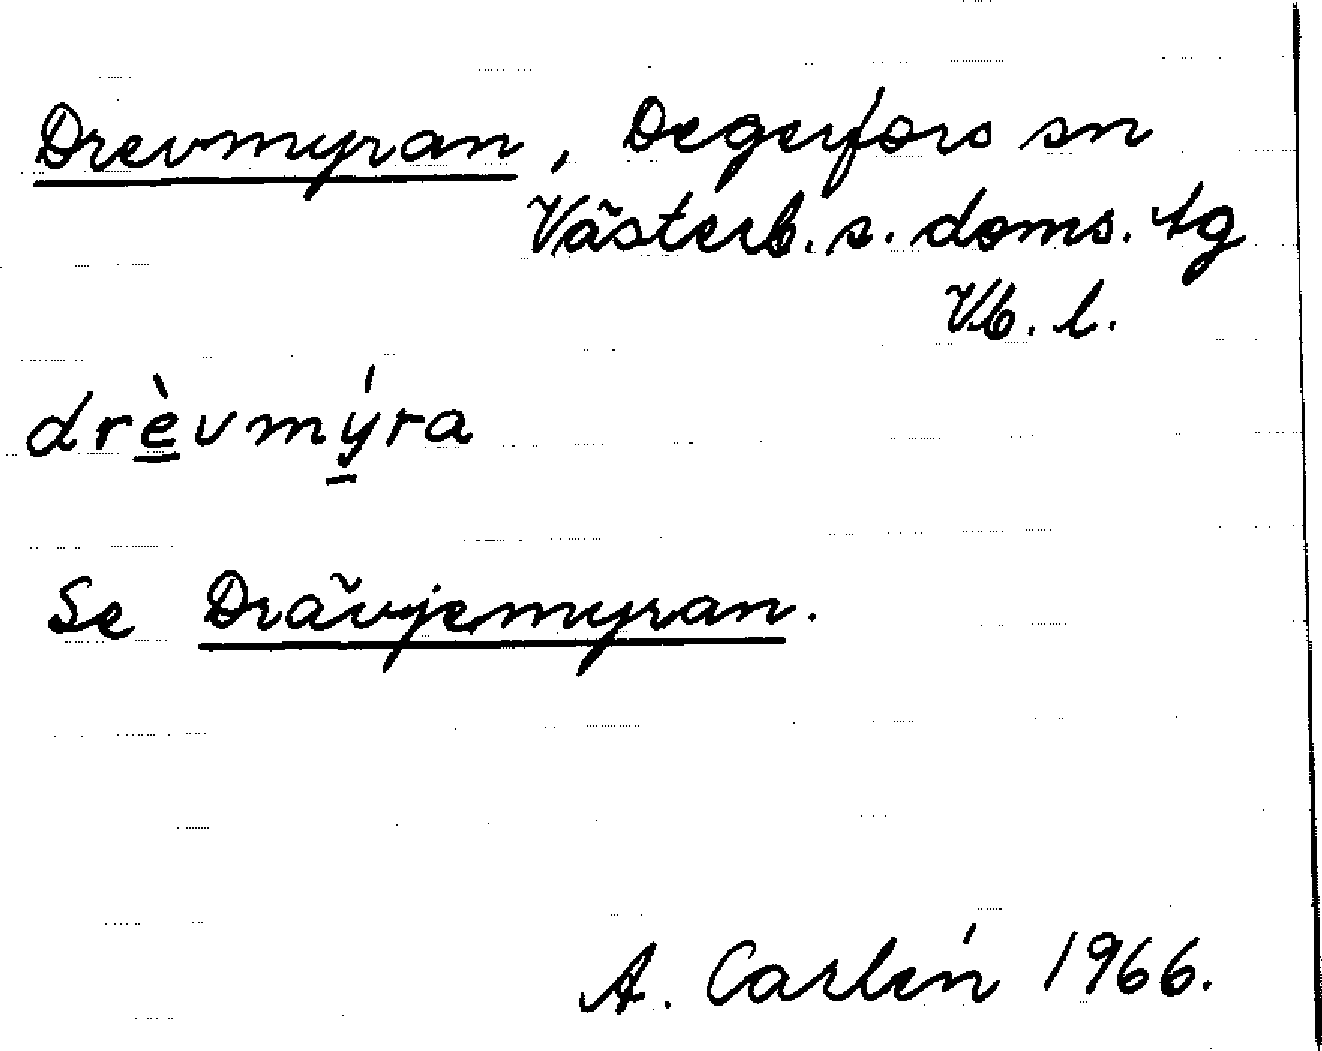 Drevmyran, Degerfors sn
Västerb. s. doms. tg
Vb. l.
drèvmýra
Se Drävjemyran.
A. Carlén 1966.